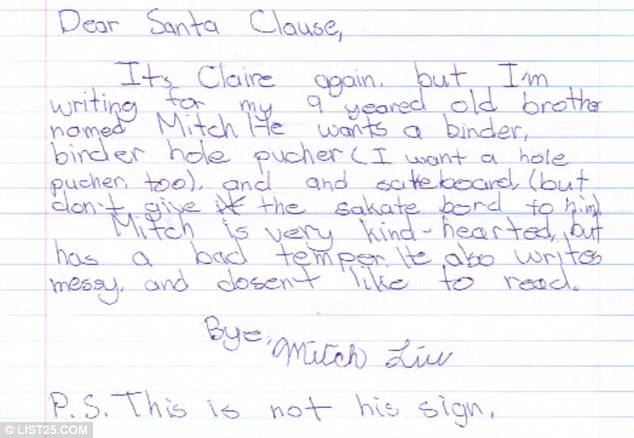 Dear Santa Clause,
Its Claire again, but I'm
writing for my 9 yeared old brother
named Mitch He wants a binder,
binder hole pucher (I want a hole
pucher, too), and and sakeboard, (but
don't give it the sakate bord to him)
Mitch is very kind-hearted, but
has a bad temper. He also writes
messy, and dosen't like to read.
Bye,
Mitch Liu
P.S. This is not his sign.
© LIST25.COM